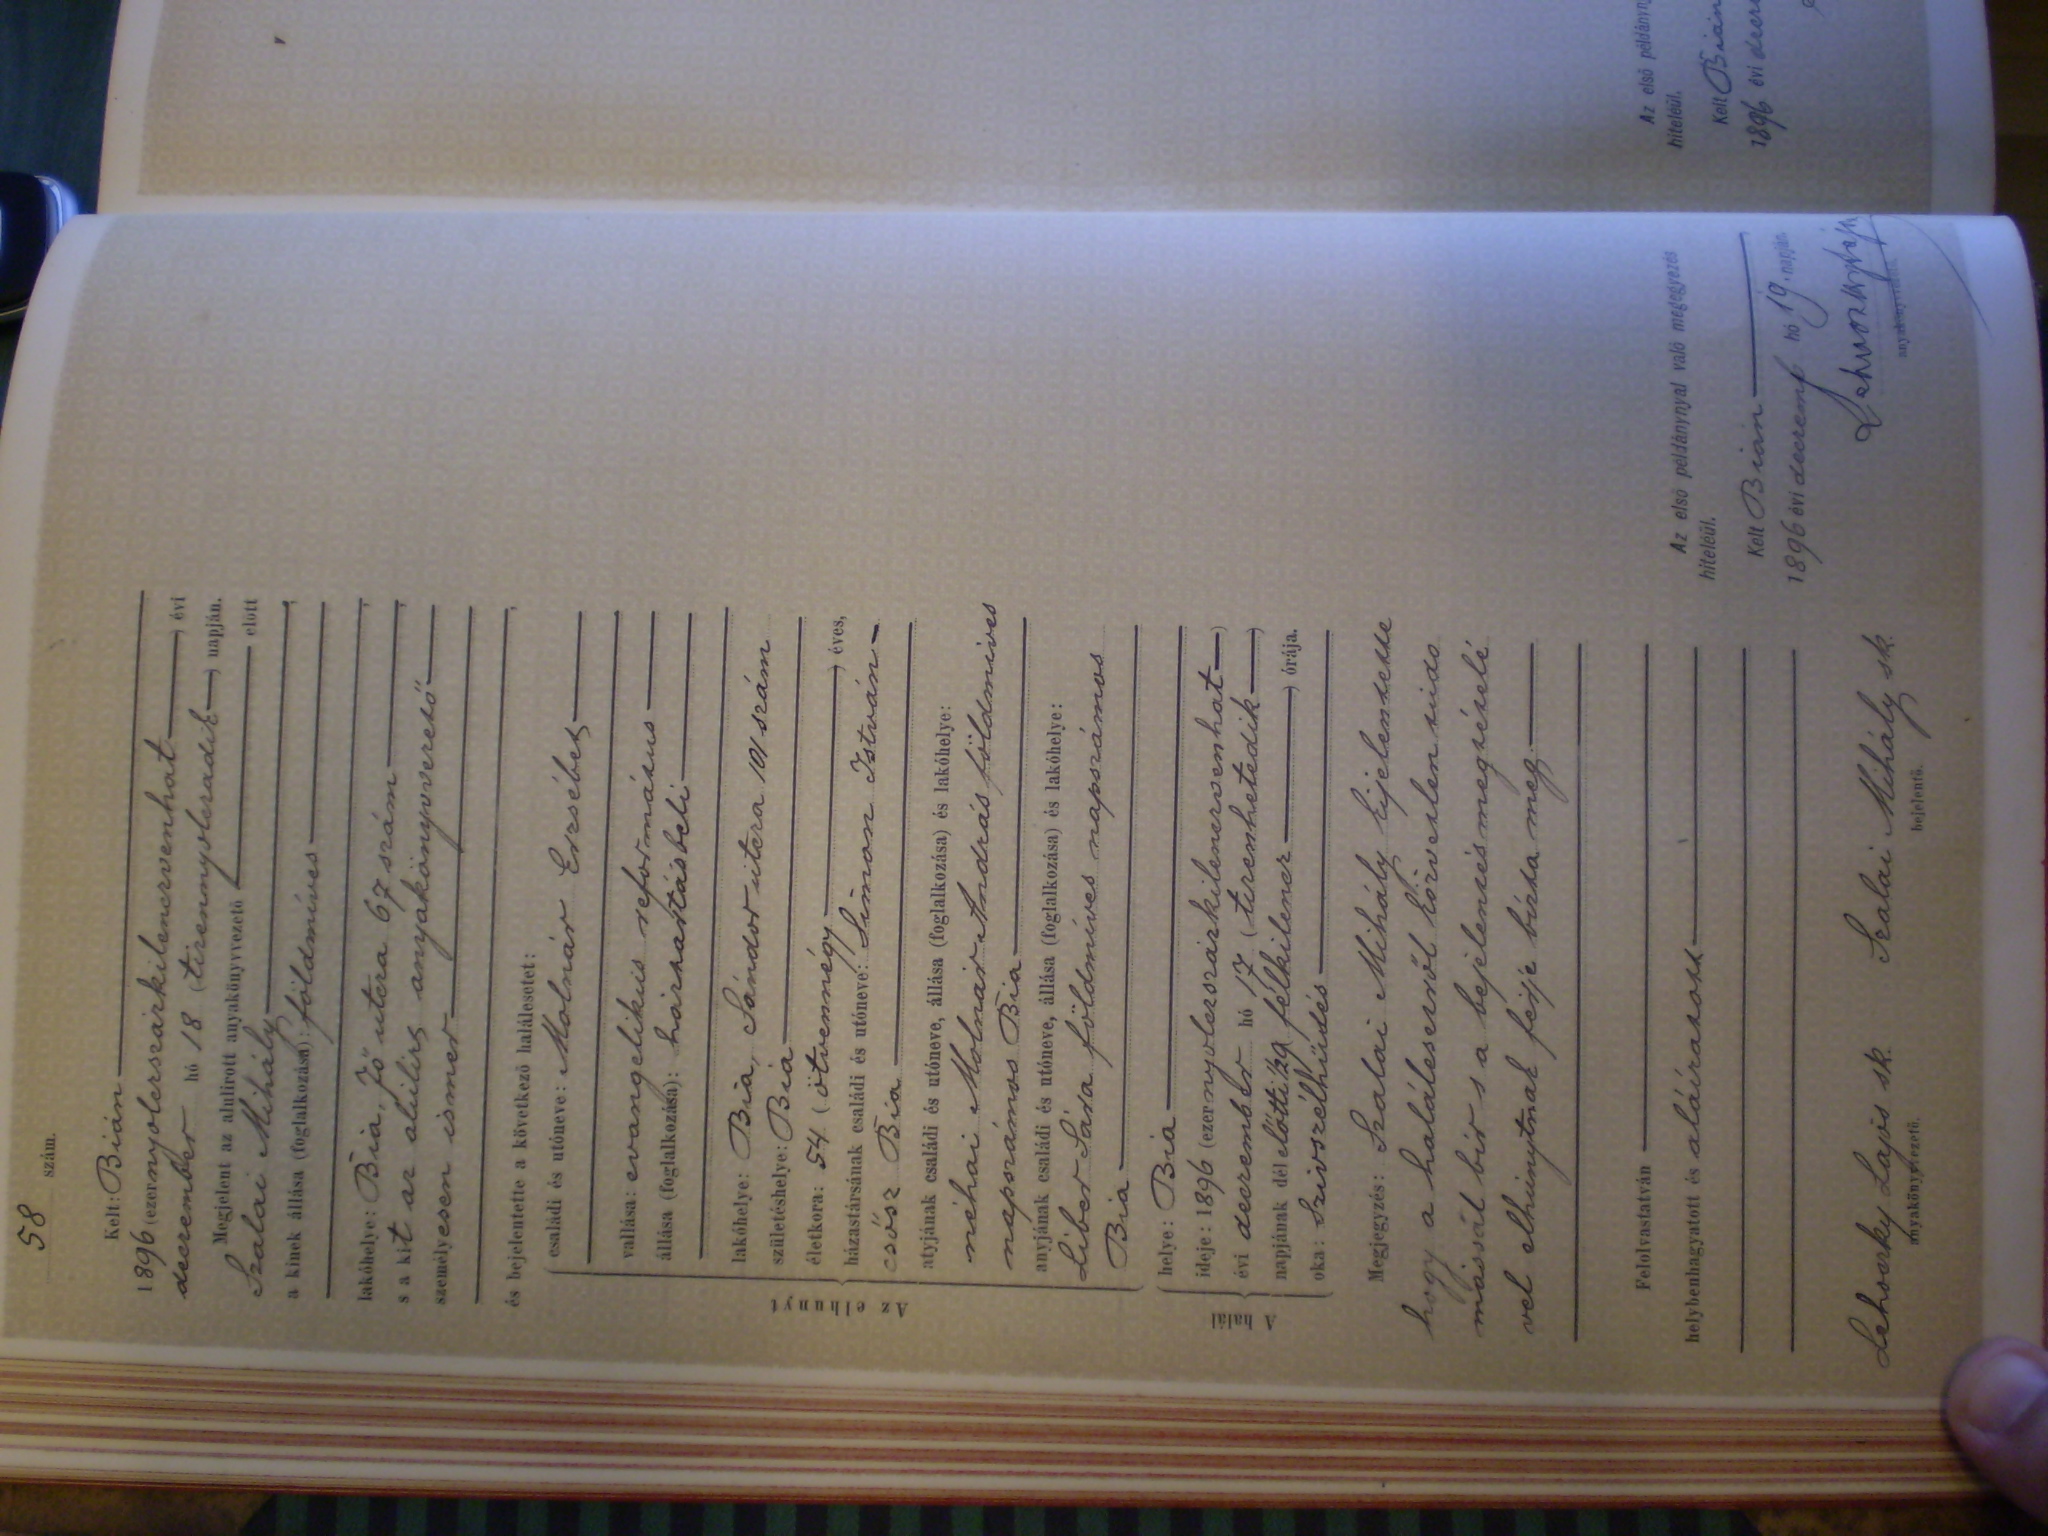 58 szám.
Kelt: Bián
1896 (ezernyolczszázkilenczvenhat) évi
deczember hó 18 (tizennyolczadik) napján.
Megjelent az alulirott anyakönyvvezető előtt
Szalai Mihály
a kinek állása (foglalkozása): földmíves
lakóhelye: Bia, fő utcza 67 szám
s a kit az alulírt anyakönyvvezető
személyesen ismer
és bejelentette a következő halálesetet:
Az elhunyt
családi és utóneve: Molnár Erzsébet
vallása: evangelikus református
állása (foglalkozása): háztartásbeli
lakóhelye: Bia, Sándor utcza 101 szám
születéshelye: Bia
életkora: 54 (ötvennégy) éves,
házastársának családi és utóneve: Simon István
csősz Bia
atyjának családi és utóneve, állása (foglalkozása) és lakóhelye:
néhai Molnár András földmíves
napszámos Bia
anyjának családi és utóneve, állása (foglalkozása) és lakóhelye:
Liber Sára földmíves napszámos
Bia
A halál
helye: Bia
ideje: 1896 (ezernyolczszázkilenczvenhat)
évi deczember hó 17 (tizenhetedik)
napjának dél előtti ½9 félkilencz) órája.
oka: Szívszélhűdés
Megjegyzés: Szalai Mihály kijelentette
hogy a halálesetről közvetlen tudo
mással bír s a bejelentés megtételé
vel elhúnytnak férje bízta meg.
Felolvastatván
helybenhagyatott és aláíratott
Lehoczky Lajos sk. Szalai Mihály sk.
anyakönyvvezető. bejelentő.
Az első példánynyal való megegyezés
hiteléül.
Kelt Bián
1896 évi deczemb hó 19. napján.
anyakönyvvezető.
Az első példányn
hiteléül.
Kelt Bián
1896 évi decze